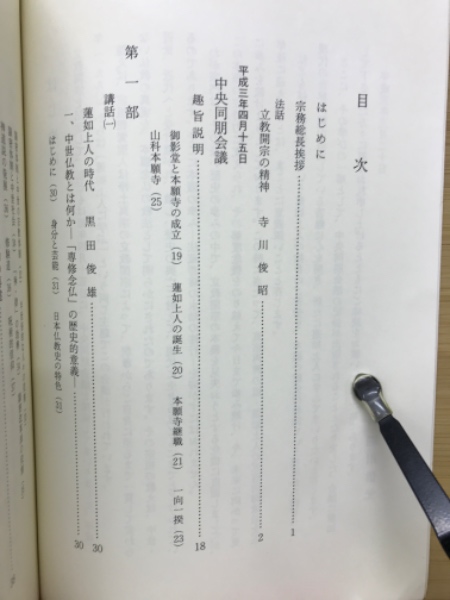 目次
はじめに
宗務総長挨拶……1
法話
立教開宗の精神　寺川俊昭……2
平成三年四月十五日
中央同朋会議
趣旨説明……18
御影堂と本願寺の成立（19）　蓮如上人の誕生（20）　本願寺継職（21）　一向一揆（23）
山科本願寺（25）
第一部
講話㈠
蓮如上人の時代　黒田俊雄……30
一、中世仏教とは何か―「専修念仏」の歴史的意義―……30
はじめに（30）　身分と芸能（31）　日本仏教史の特色（31）